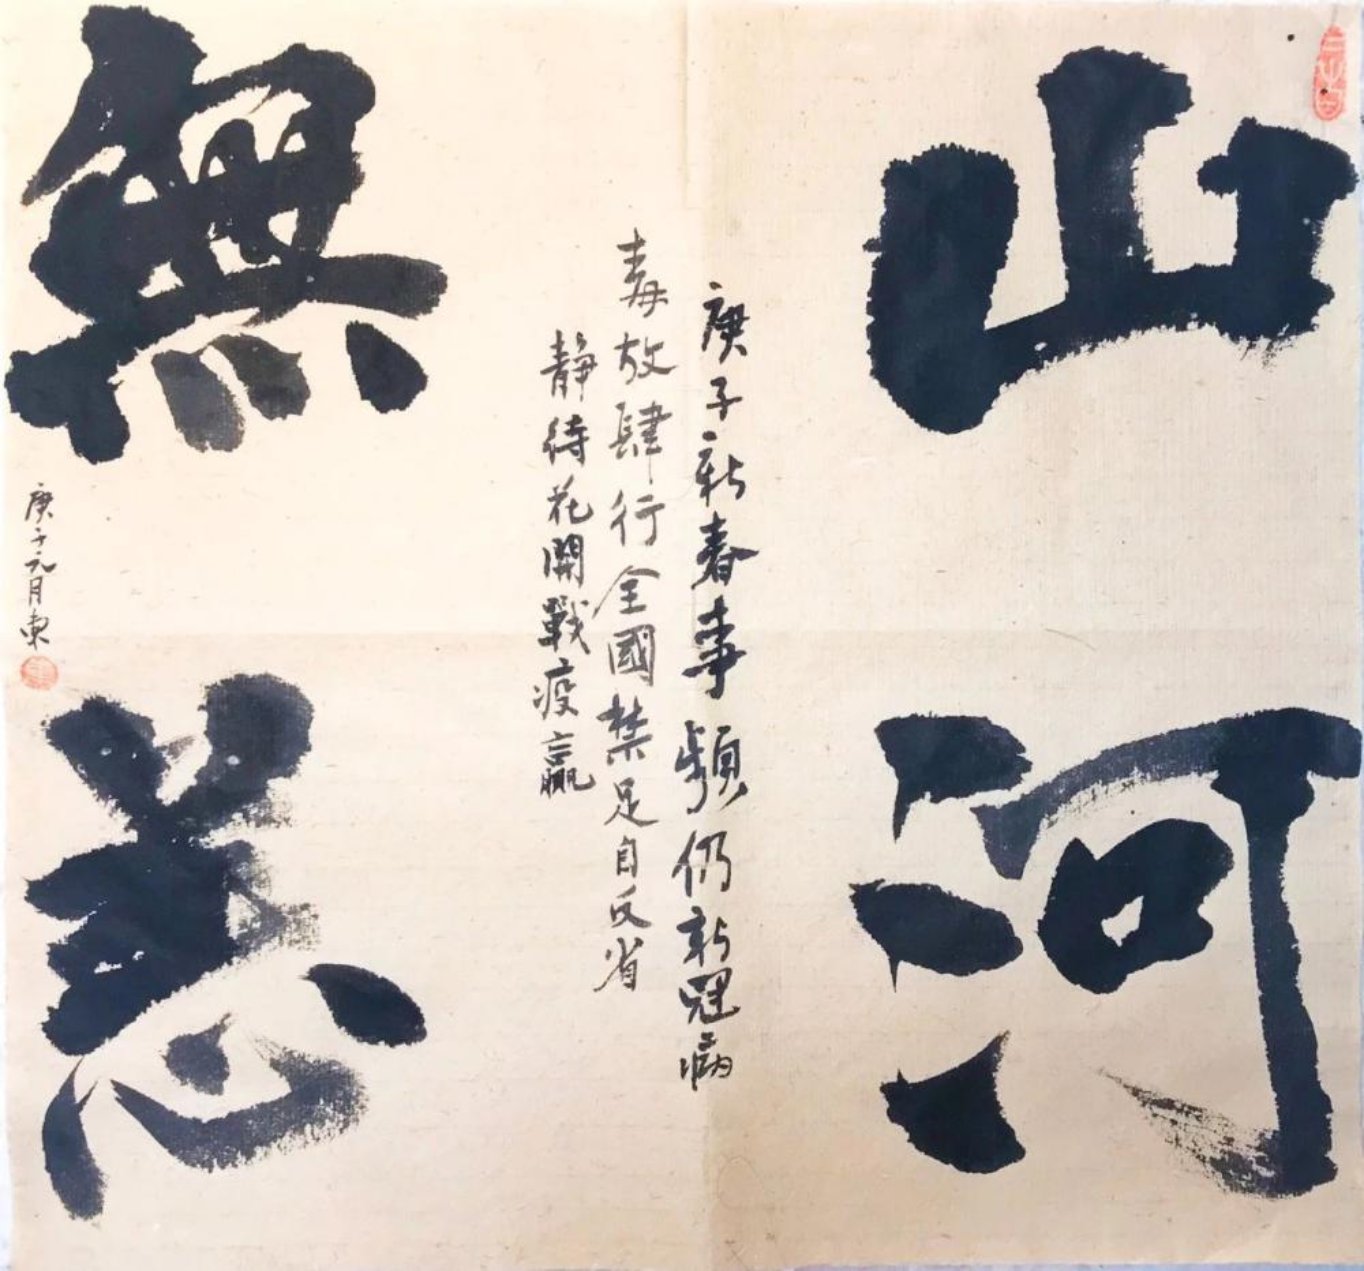 山河
庚子新春事頻仍新冠病
毒放肆行全國禁足自反省
靜待花開戰疫贏
無恙
庚子元月東